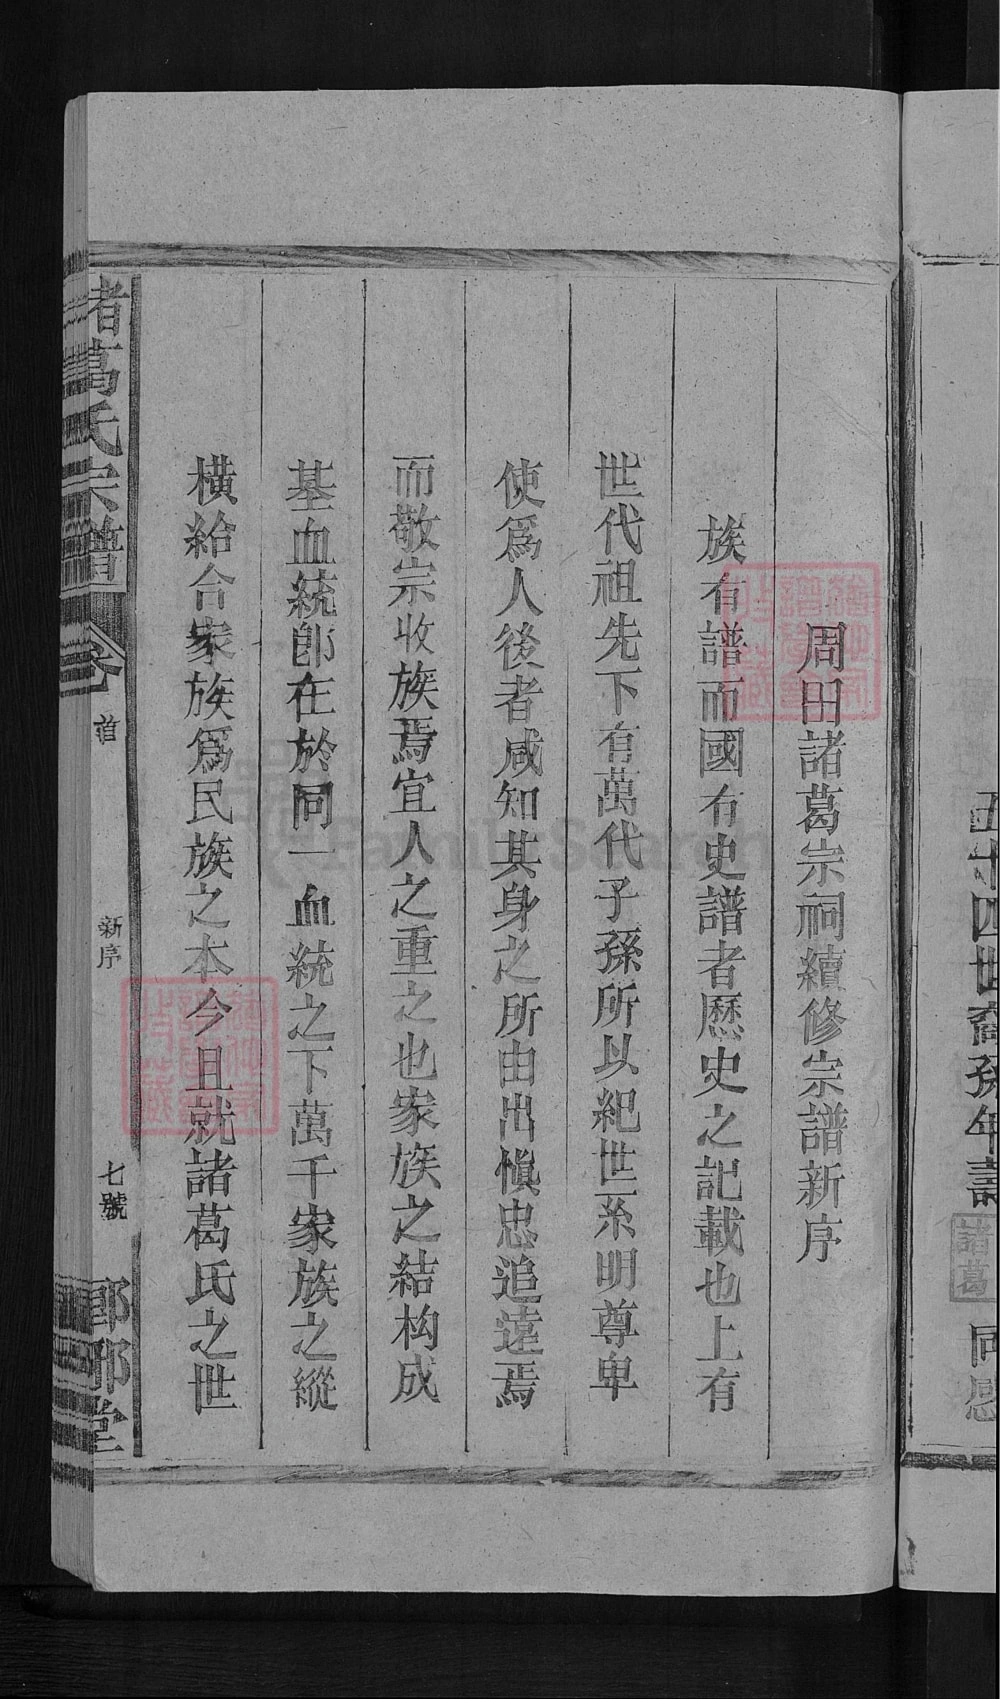 五十四世裔孫年壽 諸葛 同
周田諸葛宗祠續修宗譜新序
族有譜而國有史譜者歷史之記載也上有
世代祖先下有萬代子孫所以紀世系明尊卑
使爲人後者咸知其身之所由出愼忠追遠焉
而敬宗收族焉宜人之重之也家族之結构成
基血統卽在於同一血統之下萬千家族之縱
橫給合家族爲民族之本今且就諸葛氏之世
諸葛氏宗譜
卷首
新序
七號
郎邪堂
FamilySearch